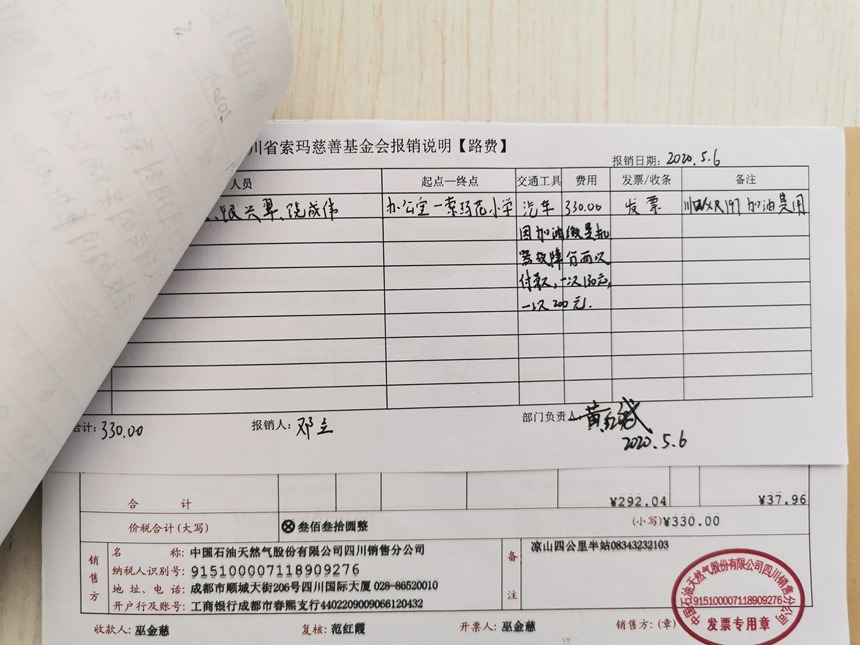 川省索玛慈善基金会报销说明【路费】
报销日期：2020.5.6
人员 起点—终点 交通工具 费用 发票/收条 备注
兴翠、阮成伟 办公室—索玛花小学 汽车 330.00 发票 加油费用
因加油微呈机
器故障分两次
付款，一次130元，
一次200元.
合计：330.00 报销人：邓立 部门负责人
2020.5.6
合 计 ¥292.04 ¥37.96
价税合计(大写) ⊗叁佰叁拾圆整 (小写)¥330.00
销售方
名 称：中国石油天然气股份有限公司四川销售分公司
纳税人识别号：915100007118909276
地址、电话：成都市顺城大街206号四川国际大厦 028-86520010
开户行及账号：工商银行成都市春熙支行4402209009066120432
备注
凉山四公里半站08343232103
中国石油天然气股份有限公司四川销售分公司
915100007118909276
发票专用章
收款人：巫金慈 复核：范红霞 开票人：巫金慈 销售方：(章)